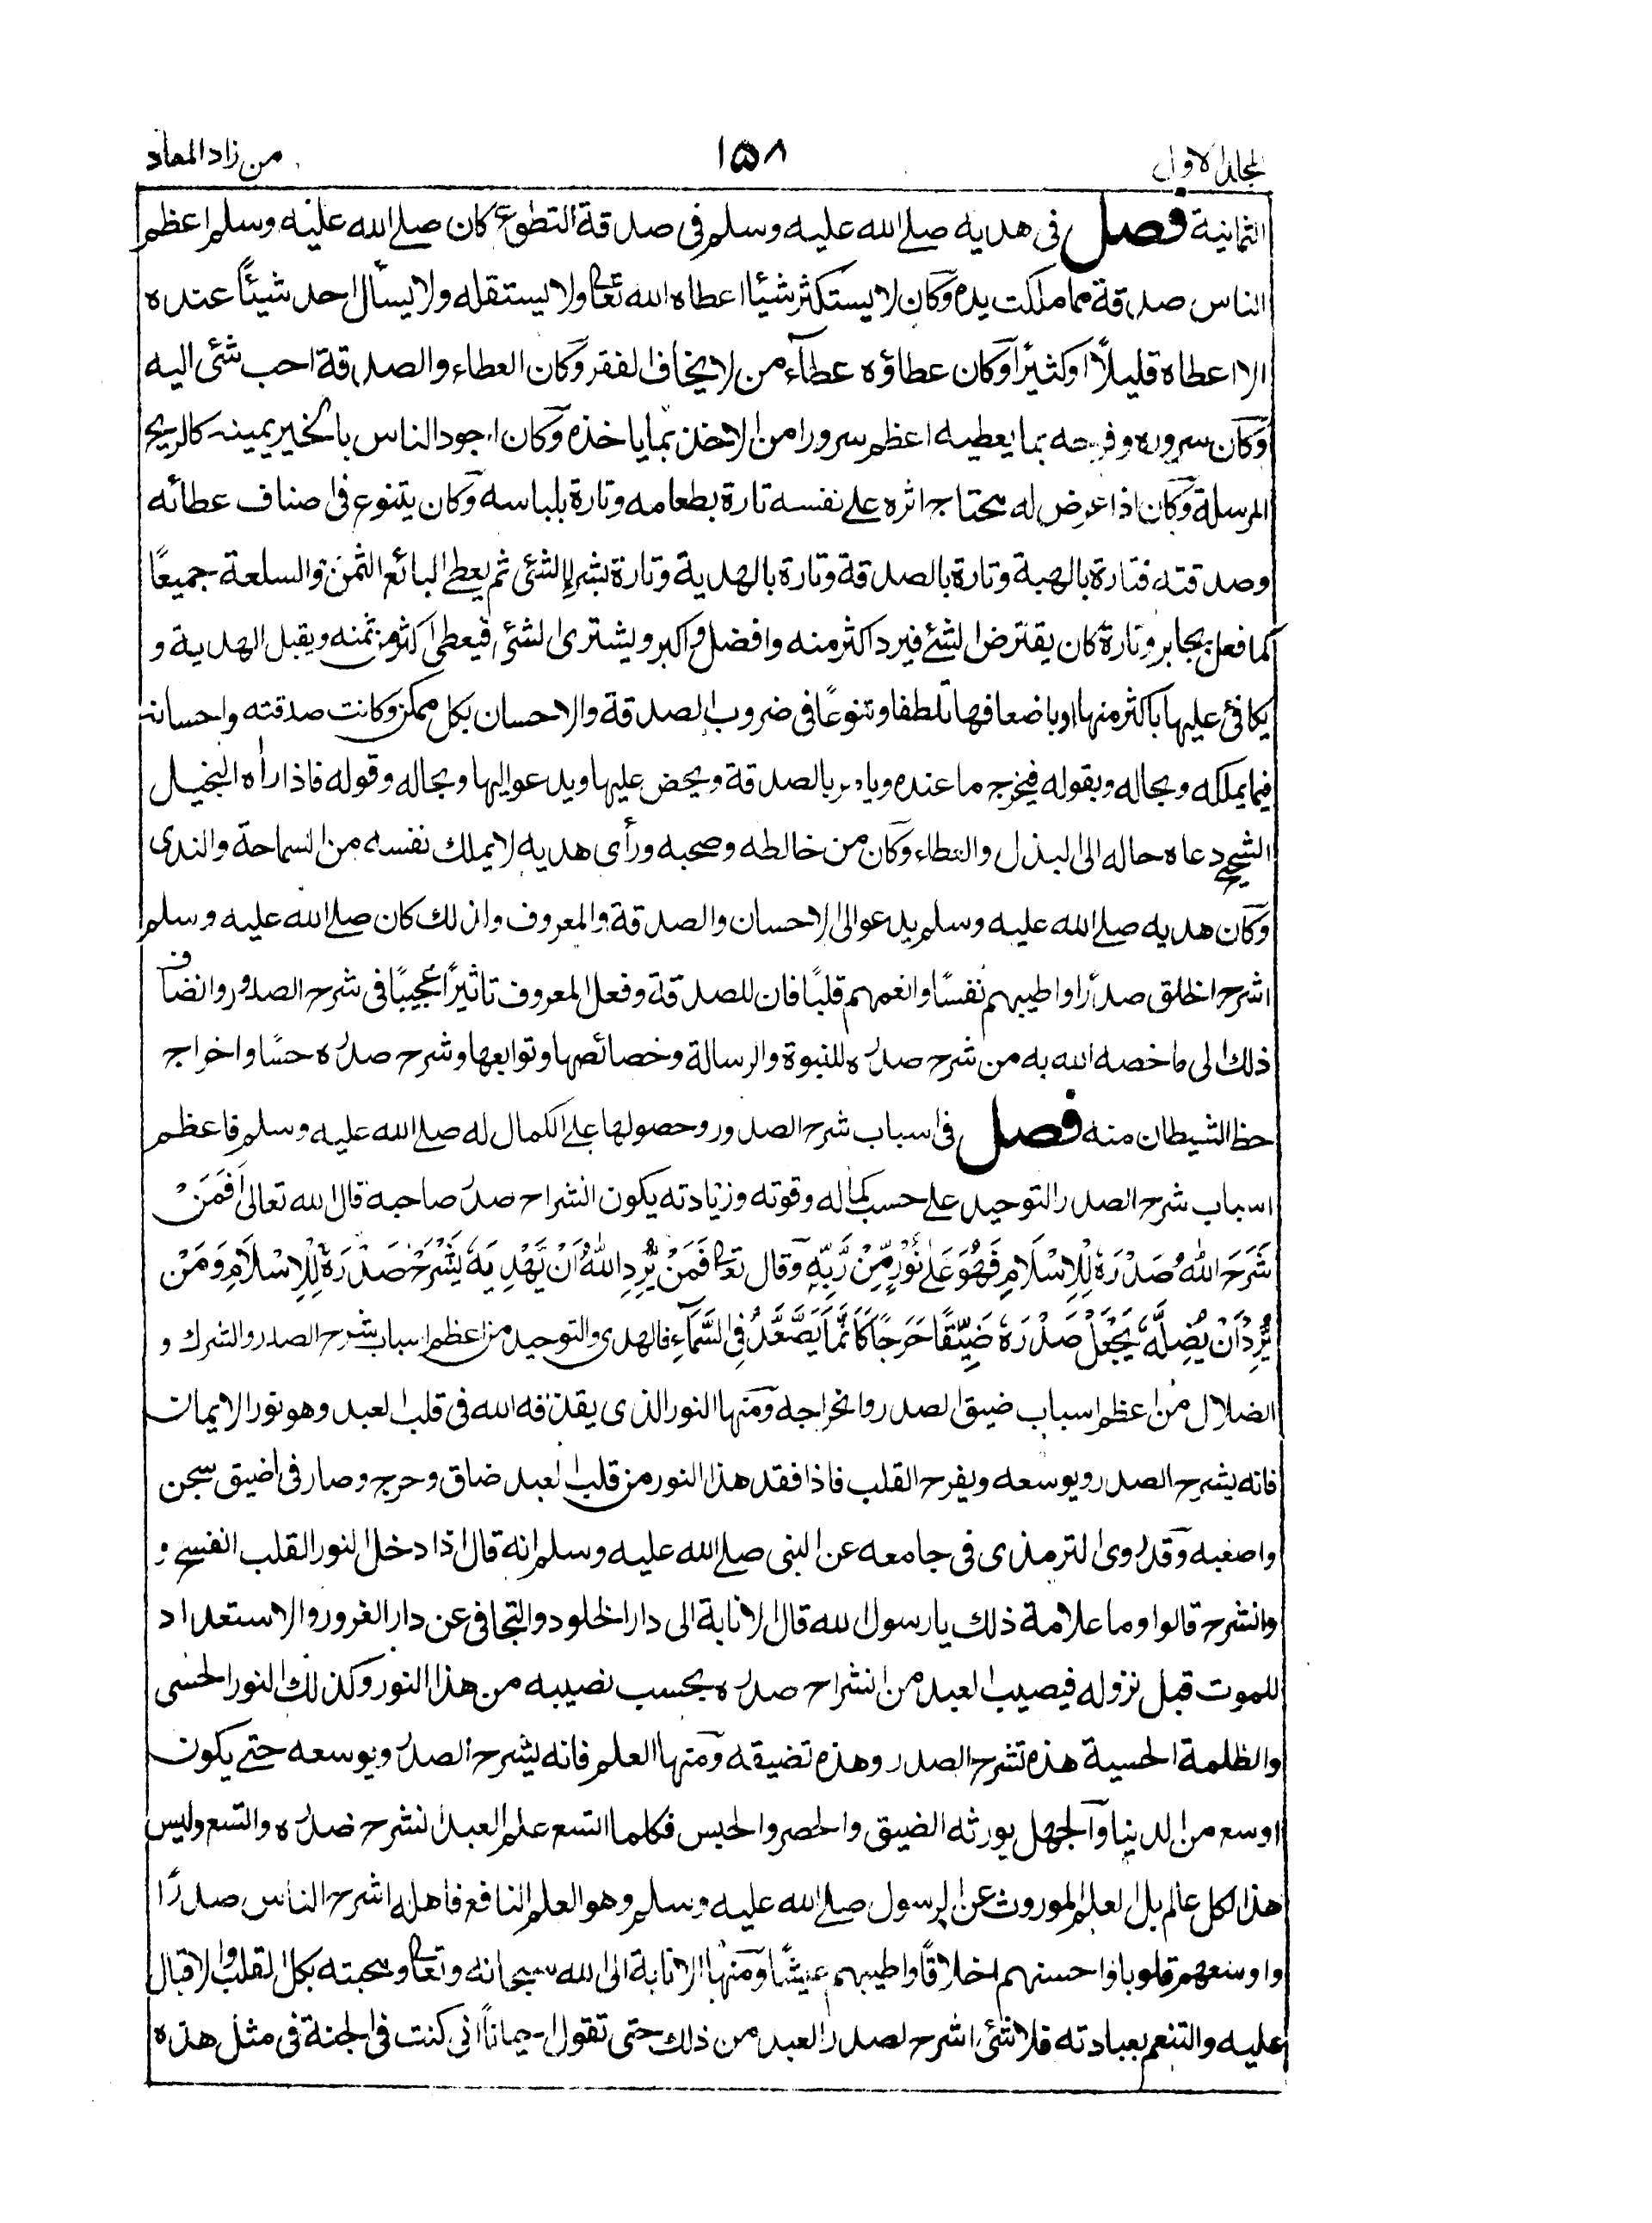 المجلد الاول
١٥٨
من زاد المعاد
الثمانية فصل فى هديه صلے الله عليه وسلم فى صدقة التطوع كان صلے الله عليه وسلم اعظم
الناس صدقة مما ملكت يده وكان لا يستكثر شيئا اعطاه الله تعالى ولا يستقله ولا يسأل احد شيئًا عنده
الا اعطاه قليلًا او كثيرًا وكان عطاؤه عطاء من لا يخاف الفقر وكان العطاء والصدقة احب شئ اليه
وكان سروره وفرحه بما يعطيه اعظم سرورا من الاخذ بما ياخذه وكان اجود الناس بالخير يمينه كالريح
المرسلة وكان اذا عرض له محتاج اثره علے نفسه تارة بطعامه وتارة بلباسه وكان يتنوع فى اصناف عطائه
وصدقته فتارة بالهبة وتارة بالصدقة وتارة بالهدية وتارة بشراء الشئ ثم يعطے البائع الثمن والسلعة جميعًا
كما فعل بجابر وتارة كان يقترض الشئ فيرد اكثر منه وافضل واكبر ويشترى الشئ فيعطى اكثر من ثمنه ويقبل الهدية و
يكافئ عليها باكثر منها او باضعافها تلطفا وتنوعًا فى ضروب الصدقة والاحسان بكل ممكن وكانت صدقته واحسانه
فيما يملكه وبحاله وبقوله فيخرج ما عنده ويامر بالصدقة ويحض عليها ويدعو اليها وبحاله وقوله فاذا راٰه البخيل
الشحيح دعاه حاله الى البذل والعطاء وكان من خالطه وصحبه ورأى هديه لا يملك نفسه من السماحة والندى
وكان هديه صلے الله عليه وسلم يدعو الى الاحسان والصدقة والمعروف ولذلك كان صلے الله عليه وسلم
اشرح الخلق صدرًا واطيبهم نفسًا وانعمهم قلبًا فان للصدقة وفعل المعروف تاثيرًا عجيبًا فى شرح الصدور وانضاف
ذلك الى ما خصه الله به من شرح صدره للنبوة والرسالة وخصائصها وتوابعها وشرح صدره حسًا واخراج
حظ الشيطان منه فصل فى اسباب شرح الصدور وحصولها علے الكمال له صلے الله عليه وسلم فاعظم
اسباب شرح الصدر التوحيد علے حسب كماله وقوته وزيادته يكون انشراح صدر صاحبه قال الله تعالى اَفَمَنْ
شَرَحَ اللهُ صَدْرَهٗ لِلْاِسْلَامِ فَهُوَ عَلٰے نُوْرٍ مِّنْ رَّبِّهٖ وقال تعالى فَمَنْ يُّرِدِ اللهُ اَنْ يَّهْدِيَهٗ يَشْرَحْ صَدْرَهٗ لِلْاِسْلَامِ وَمَنْ
يُّرِدْ اَنْ يُّضِلَّهٗ يَجْعَلْ صَدْرَهٗ ضَيِّقًا حَرَجًا كَاَنَّمَا يَصَّعَّدُ فِى السَّمَآءِ فالهدى والتوحيد من اعظم اسباب شرح الصدر والشرك و
الضلال من اعظم اسباب ضيق الصدر وانحراجه ومنها النور الذى يقذفه الله فى قلب العبد وهو نور الايمان
فانه يشرح الصدر ويوسعه ويفرح القلب فاذا فقد هذا النور من قلب العبد ضاق وحرج وصار فى اضيق سجن
واصعبه وقد روى الترمذى فى جامعه عن النبى صلے الله عليه وسلم انه قال اذا دخل النور القلب انفسح و
وانشرح قالوا وما علامة ذلك يا رسول الله قال الانابة الى دار الخلود والتجافى عن دار الغرور والاستعداد
للموت قبل نزوله فيصيب العبد من انشراح صدره بحسب نصيبه من هذا النور وكذلك النور الحسى
والظلمة الحسية هذه تشرح الصدر وهذه تضيقه ومنها العلم فانه يشرح الصدر ويوسعه حتے يكون
اوسع من الدنيا والجهل يورثه الضيق والحصر والحبس فكلما اتسع علم العبد انشرح صدره واتسع وليس
هذا لكل عالم بل العلم الموروث عن الرسول صلے الله عليه وسلم وهو العلم النافع فاهله اشرح الناس صدرًا
واوسعهم قلوبا واحسنهم اخلاقًا واطيبهم عيشًا ومنها الانابة الى الله سبحانه وتعالى ومحبته بكل القلب والاقبال
عليه والتنعم بعبادته فلا شئ اشرح لصدر العبد من ذلك حتى تقول احيانًا انى كنت فى الجنة فى مثل هذه